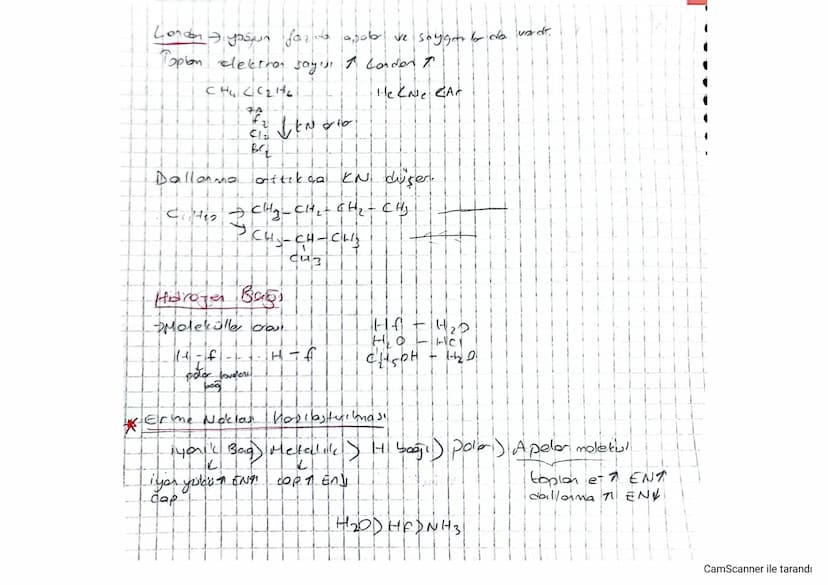 London → yoğun fazda apolar ve soygazlarda vardır.
Toplam elektron sayısı ↑ London ↑
CH4 < C2H6 He < Ne < Ar
7A
F2
Cl2 ↓ KN artar
Br2
Dallanma arttıkça KN düşer.
→ CH3-CH2-CH2-CH3
CH3-CH-CH3
CH3
Hidrojen Bağı
→ Moleküller arası HF - H2O
H2O - HCl
H-F ---- H-F C2H5OH - H2O
polar kovalent
bağ
* Erime Noktası Karşılaştırılması
iyonik Bağ > Metalik > H bağı > Polar > Apolar molekül
iyon yükü ↑ EN ↑ çap ↑ EN ↓ toplam e- ↑ EN ↑
çap dallanma ↑ EN ↓
H2O > HF > NH3
CamScanner ile tarandı